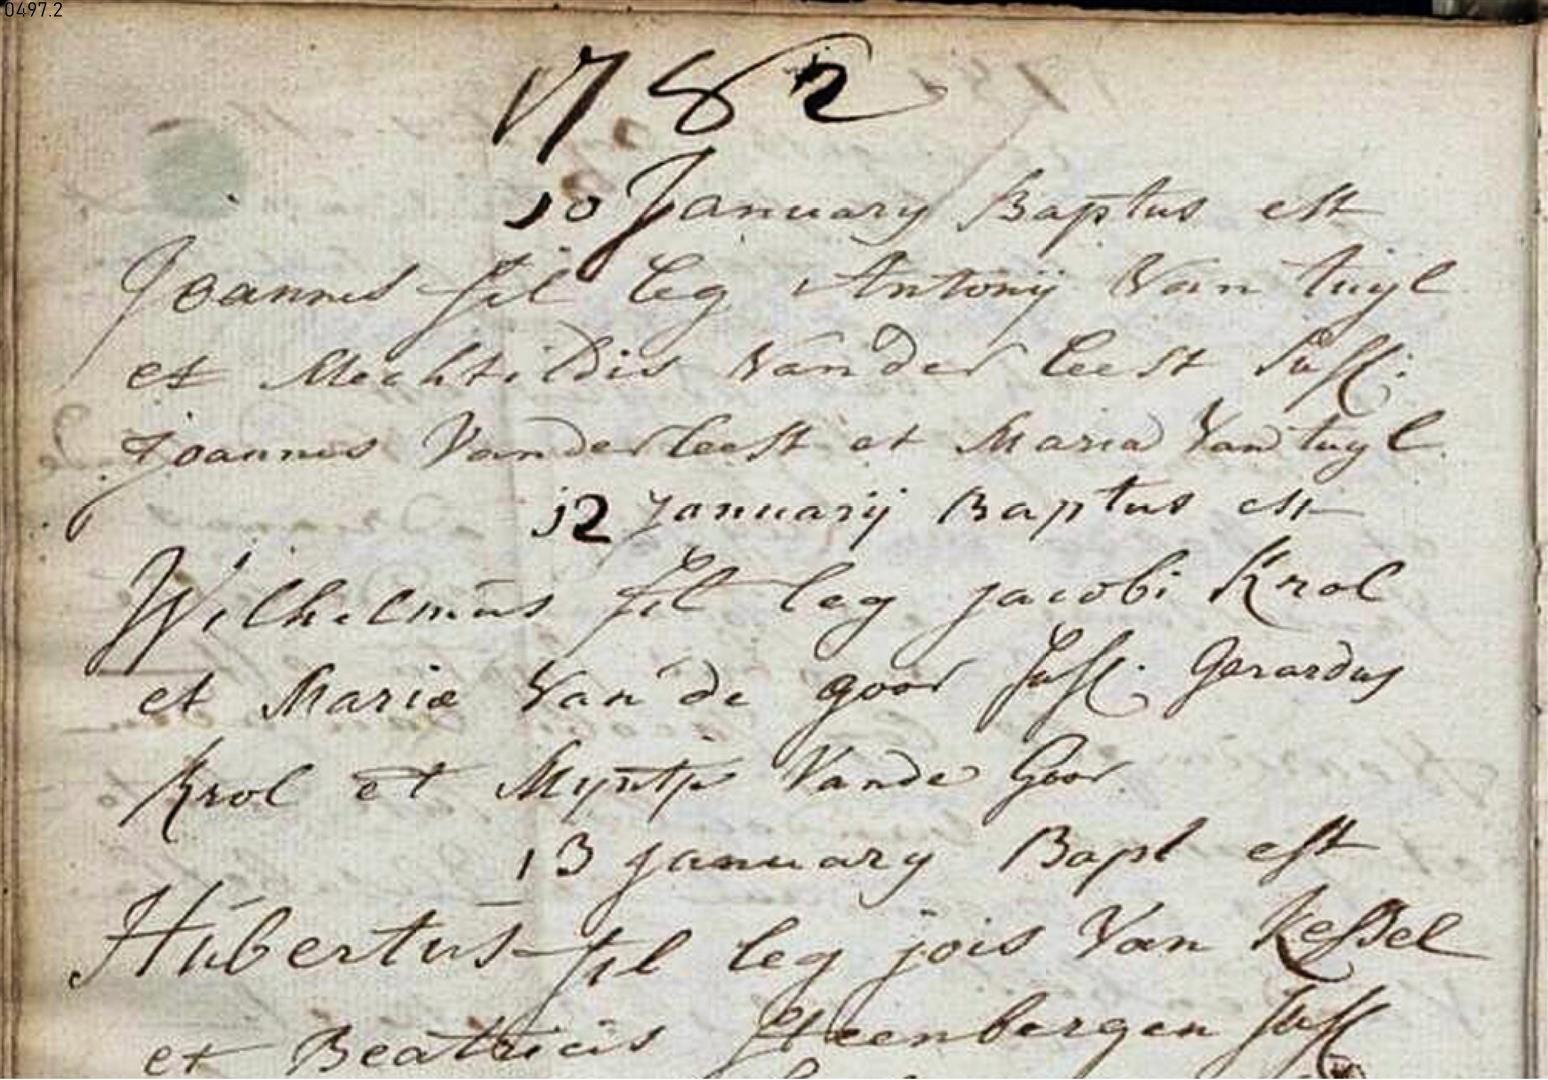 0497.2
1782
10 January Baptus est
Joannes fil leg Antonij Van tuijl
et Mechtildis Van der leest Susc:
joannes Van der leest et Maria Van tuyl
12 januarij Baptus est
Wilhelmus fil leg jacobi Krol
et Mariæ Van de goor Susc: Gerardus
Krol et Myntje Vande Goor
13 january Bapt est
Hubertus fil leg jois Van Kessel
et Beatricis Steenbergen Susc